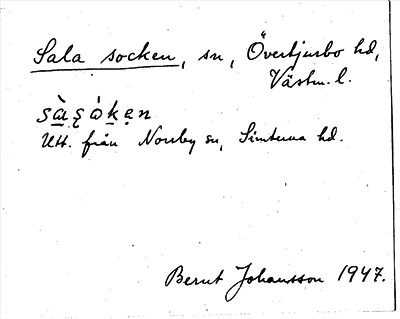 Sala socken, sn, Övertjurbo hd,
Västm. l.
sàsòken
Utt. från Norrby sn, Simtuna hd.
Bernt Johansson 1947.